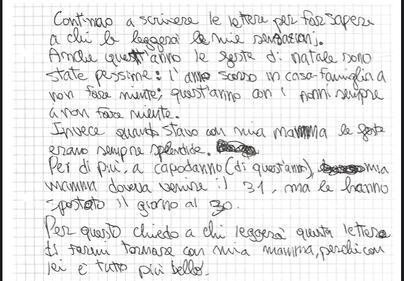 Continuo a scrivere le lettere per far sapere
a chi le leggerà le mie sensazioni.
Anche quest'anno le feste di natale sono
state pessime: l'anno scorso in casa-famiglia a
non fare niente; quest'anno con i nonni sempre
a non fare niente.
Invece quando stavo con mia mamma le feste
erano sempre splendide.
Per di più, a capodanno (di quest'anno), mia
mamma doveva venire il 31, ma le hanno
spostato il giorno al 30.
Per questo chiedo a chi leggerà questa lettera
di farmi tornare con mia mamma, perché con
lei è tutto più bello.